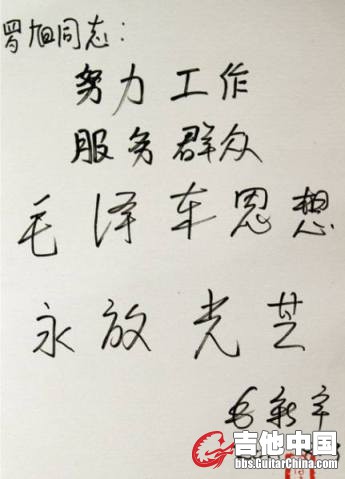 罗旭同志：
努力工作
服务群众
毛泽东思想
永放光芒
毛新宇
吉他中国
bbs.GuitarChina.com